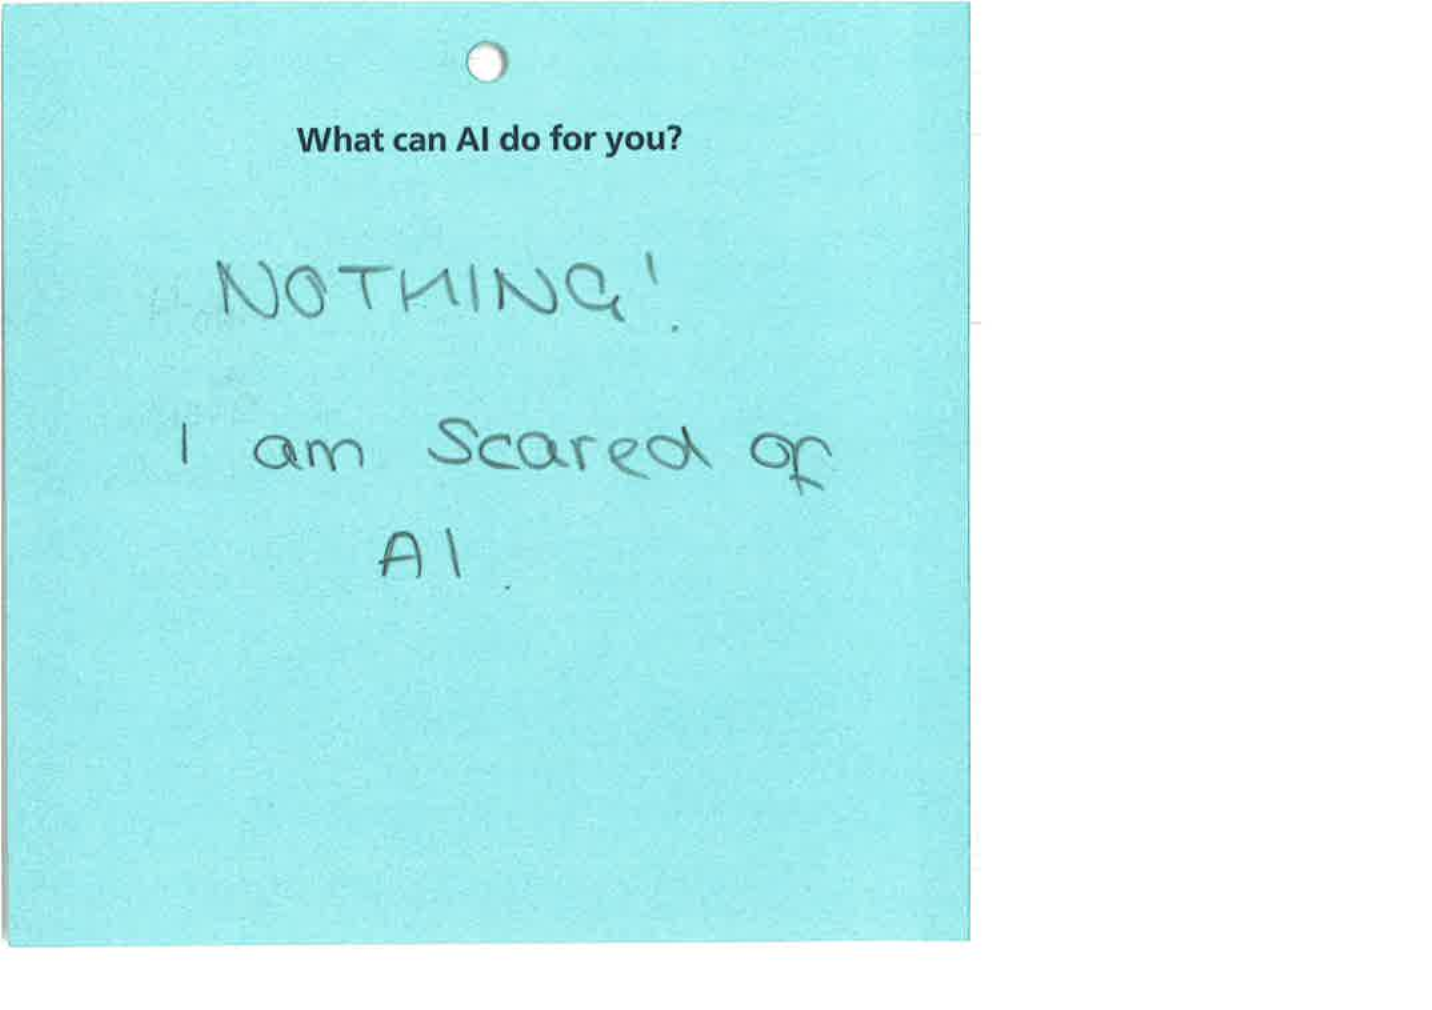 What can AI do for you?
NOTHING!
I am Scared of
AI.